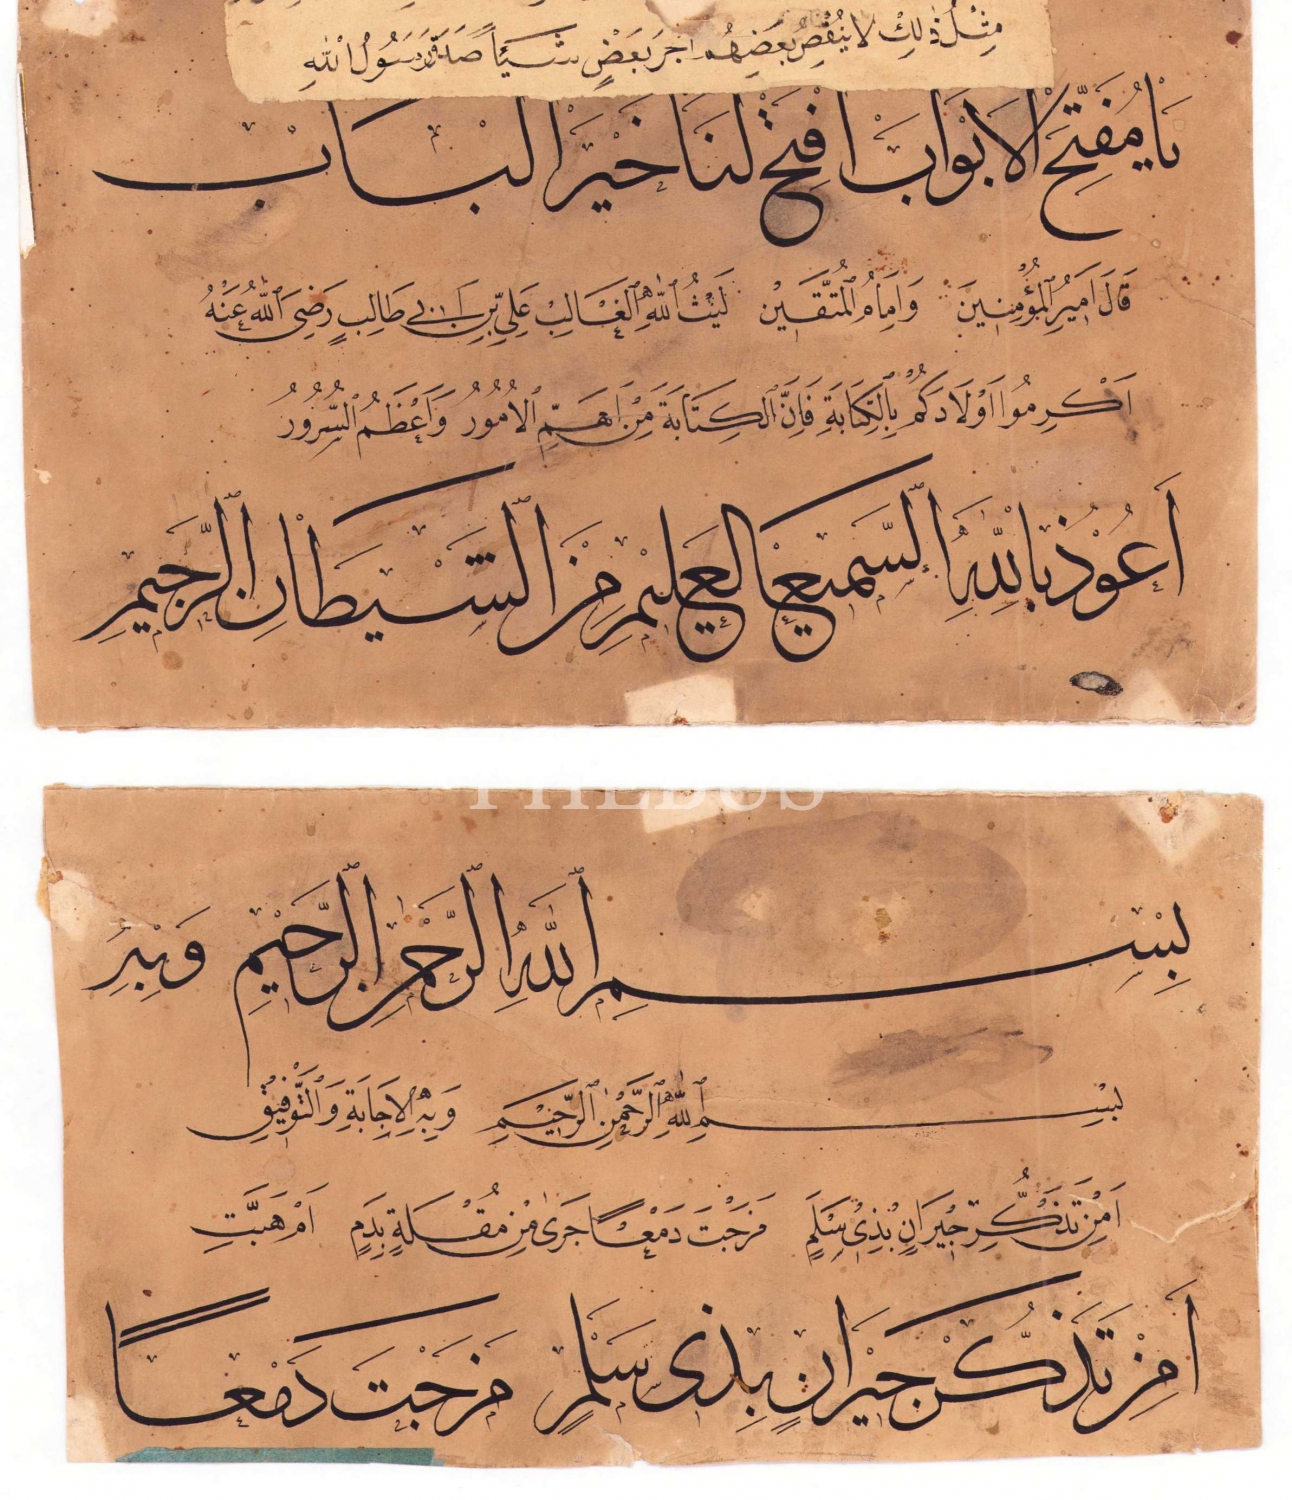 مِثْلُ ذٰلِكَ لَا يُنْقِصُ بَعْضُهُمْ أَجْرَ بَعْضٍ شَيْئًا صَدَقَ رَسُولُ اللهِ
يَا مُفَتِّحَ الْاَبْوَابِ اِفْتَحْ لَنَا خَيْرَ الْبَابِ
قَالَ اَمِيرُ الْمُؤْمِنِينَ وَاِمَامُ الْمُتَّقِينَ لَيْثُ اللهِ الْغَالِبْ عَلِيِّ بْنِ اَبِي طَالِبٍ رَضِيَ اللهُ عَنْهُ
اَكْرِمُوا اَوْلَادَكُمْ بِالْكِتَابَةِ فَاِنَّ الْكِتَابَةَ مِنْ اَهَمِّ الْاُمُورُ وَاَعْظَمُ السُّرُورُ
اَعُوذُ بِاللهِ السَّمِيعِ الْعَلِيمِ مِنَ الشَّيْطَانِ الرَّجِيمِ
PHEBUS
بِسْمِ اللهِ الرَّحْمٰنِ الرَّحِيمِ وَبِهِ
بِسْمِ اللهِ الرَّحْمٰنِ الرَّحِيمِ وَبِهِ الْاِجَابَةِ وَالتَّوْفِيقِ
اَمِنْ تَذَكُّرِ جِيرَانٍ بِذِي سَلَمٍ مَزَجْتَ دَمْعًا جَرٰى مِنْ مُقْلَةٍ بِدَمٍ اَمْ هَبَّتِ
اَمِنْ تَذَكُّرِ جِيرَانٍ بِذِي سَلَمٍ مَزَجْتَ دَمْعًا